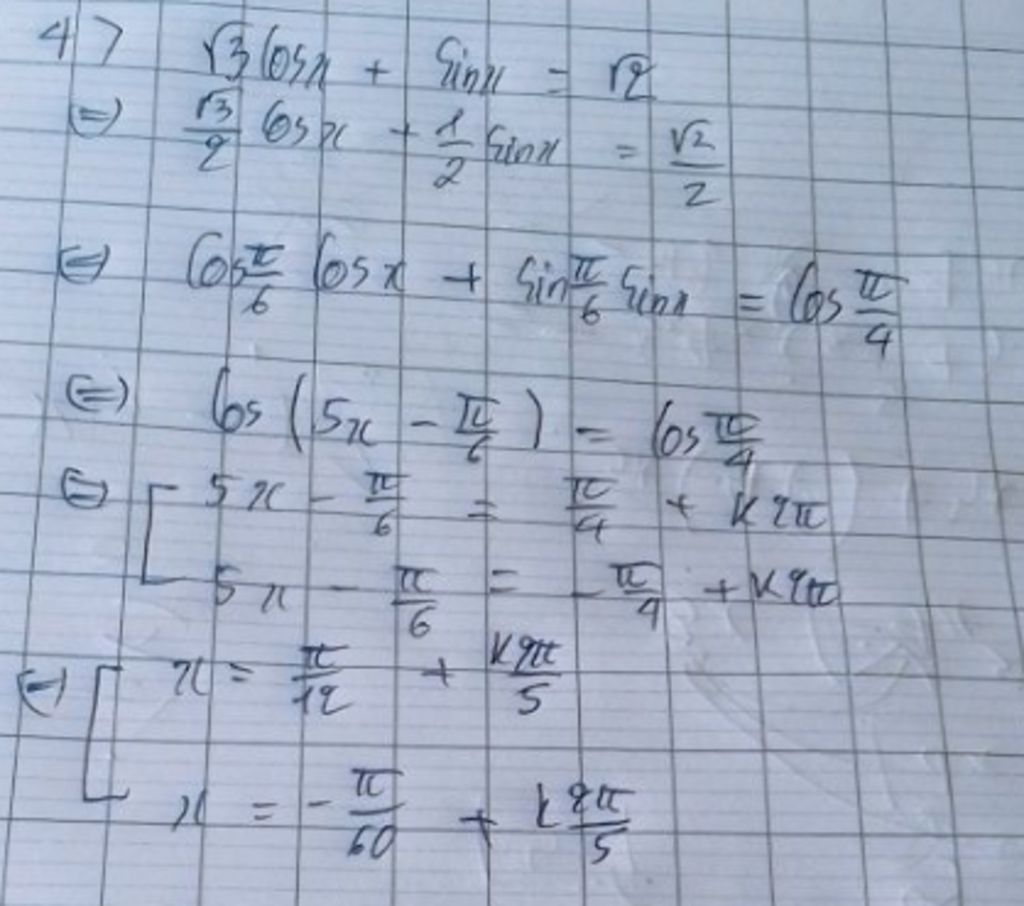 4> √3 Cosx + Sinx = √2
(=) √3/2 Cosx + 1/2 Sinx = √2/2
(=) Cos π/6 Cosx + Sin π/6 Sinx = Cos π/4
(=) Cos (5x - π/6) = Cos π/4
(=) [ 5x - π/6 = π/4 + k2π
5x - π/6 = -π/4 + k2π
(=) [ x = π/12 + k2π/5
x = -π/60 + k2π/5